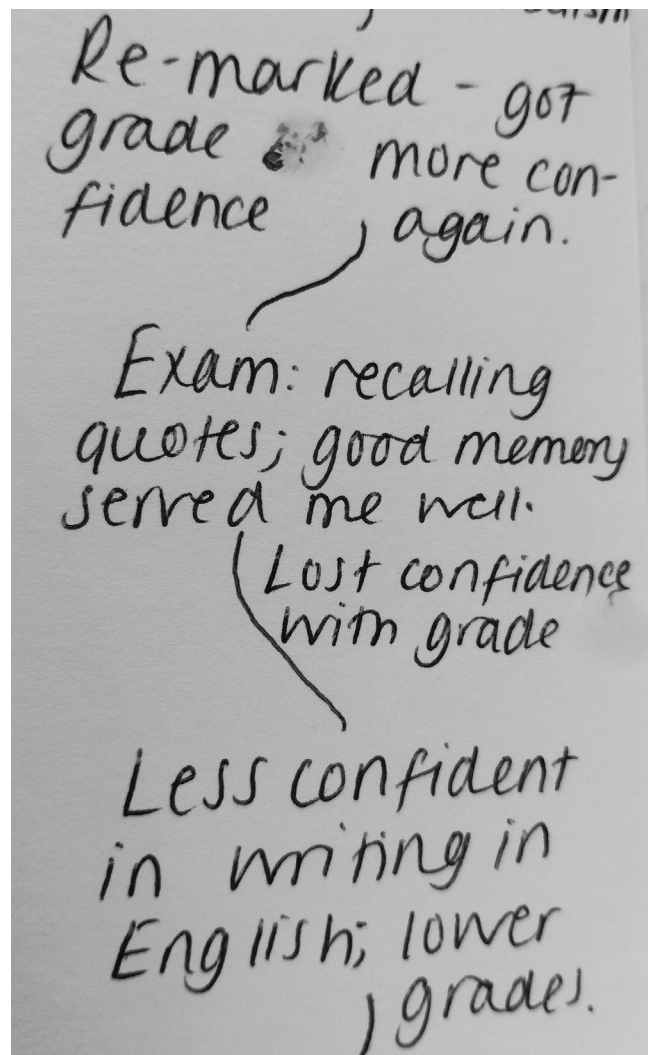 Re-marked - got
grade more con-
fidence again.
Exam: recalling
quotes; good memory
served me well.
Lost confidence
with grade
Less confident
in writing in
English; lower
grades.